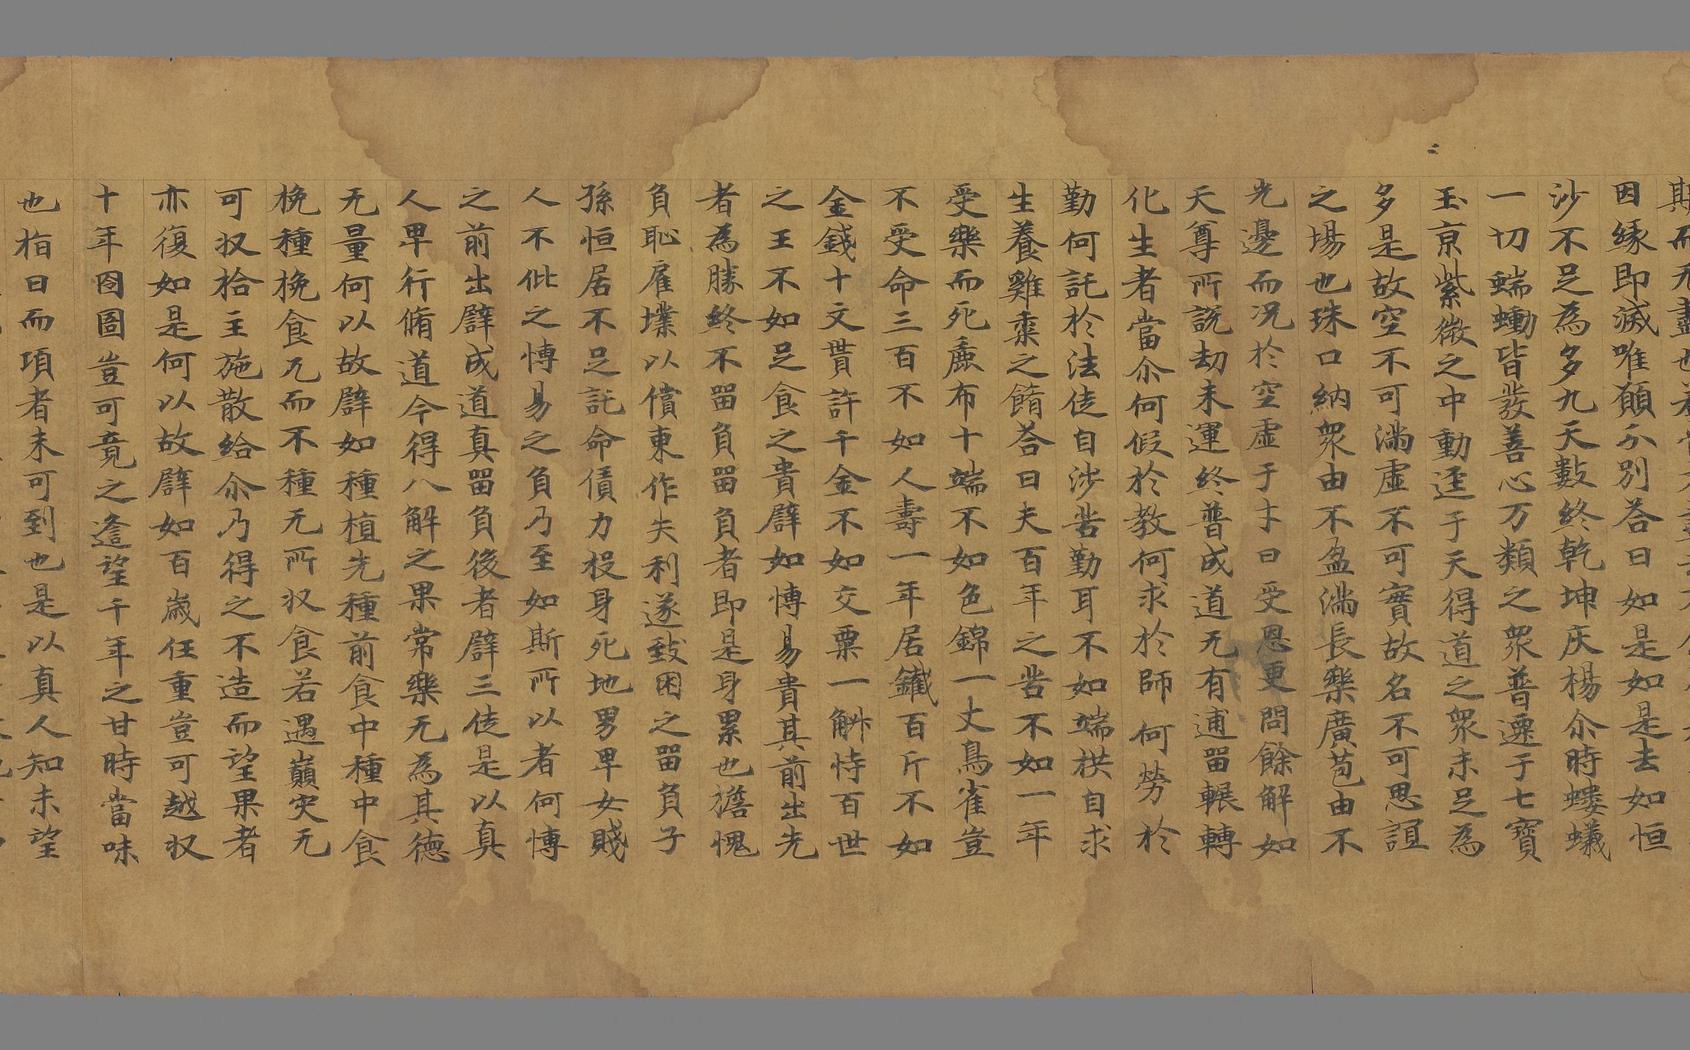 期而无盡也
因緣即滅唯願分別荅曰如是如是去如恒
沙不足為多九天數終乾坤庆楊尒時螻蟻
一切蠕動皆發善心万類之衆普遷于七寶
玉京紫微之中動逕于天得道之衆未足為
多是故空不可滿虛不可寶故名不可思誼
之場也珠口納衆由不盈滿長樂廣苞由不
光邊而况於空虛于才曰受恩更問餘解如
天尊所說劫未運終普成道无有逋留輾轉
化生者當尒何假於教何求於師何勞於
勤何託於法徒自涉苦勤耳不如端栱自求
生養雞豢之餚荅曰夫百年之苦不如一年
受樂而死麁布十端不如色錦一丈鳥雀豈
不受命三百不如人壽一年居鐵百斤不如
金錢十文貰許千金不如交粟一斛恃百世
之王不如足食之貴譬如愽易貴其前出先
者為勝終不留負留負者即是身累也擔愧
負恥雇㙡以償東作失利遂致困之留負子
孫恒居不足託命債力投身死地男卑女賤
人不仳之愽易之負乃至如斯所以者何愽
之前出譬成道真留負後者譬三徒是以真
人卑行脩道今得八解之果常樂无為其德
无量何以故譬如種植先種前食中種中食
挽種挽食凢而不種无所収食若遇巔灾无
可収拾主施散給尒乃得之不造而望果者
亦復如是何以故譬如百歲任重豈可越収
十年囹圄豈可竟之逢望千年之甘時當味
也栢曰而項者未可到也是以真人知未望